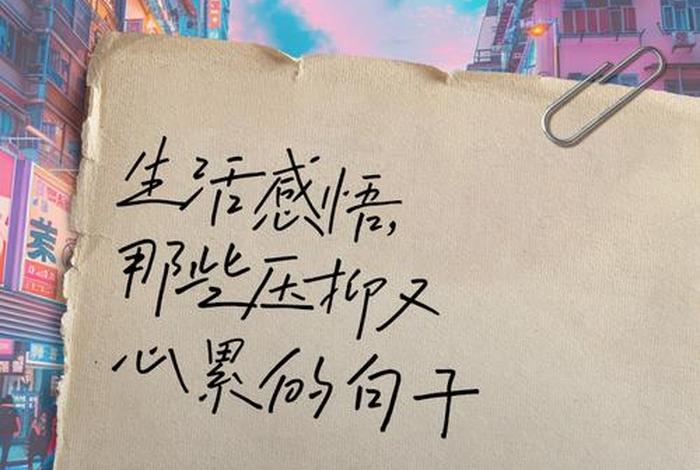 生活感悟,
那些压抑又
心累的句子